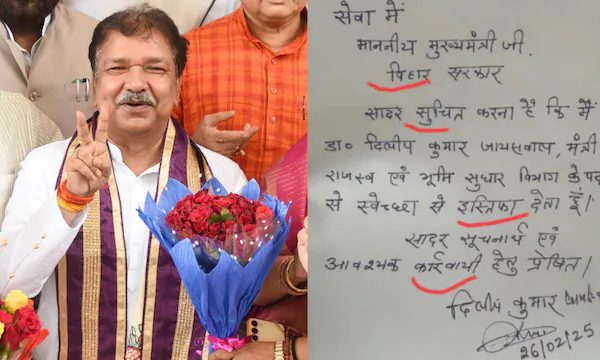 सेवा में
माननीय मुख्यमंत्री जी.
विहार सरकार
सादर सुचित करना है कि मैं
डा० दिलीप कुमार जायसवाल, मंत्री
राजस्व एवं भूमि सुधार विभाग के पद
से स्वेच्छा से इस्तिफा देता हूँ।
सादर सूचनार्थ एवं
आवश्यक कार्रवायी हेतु प्रेषित।
दिलीप कुमार
26/02/25